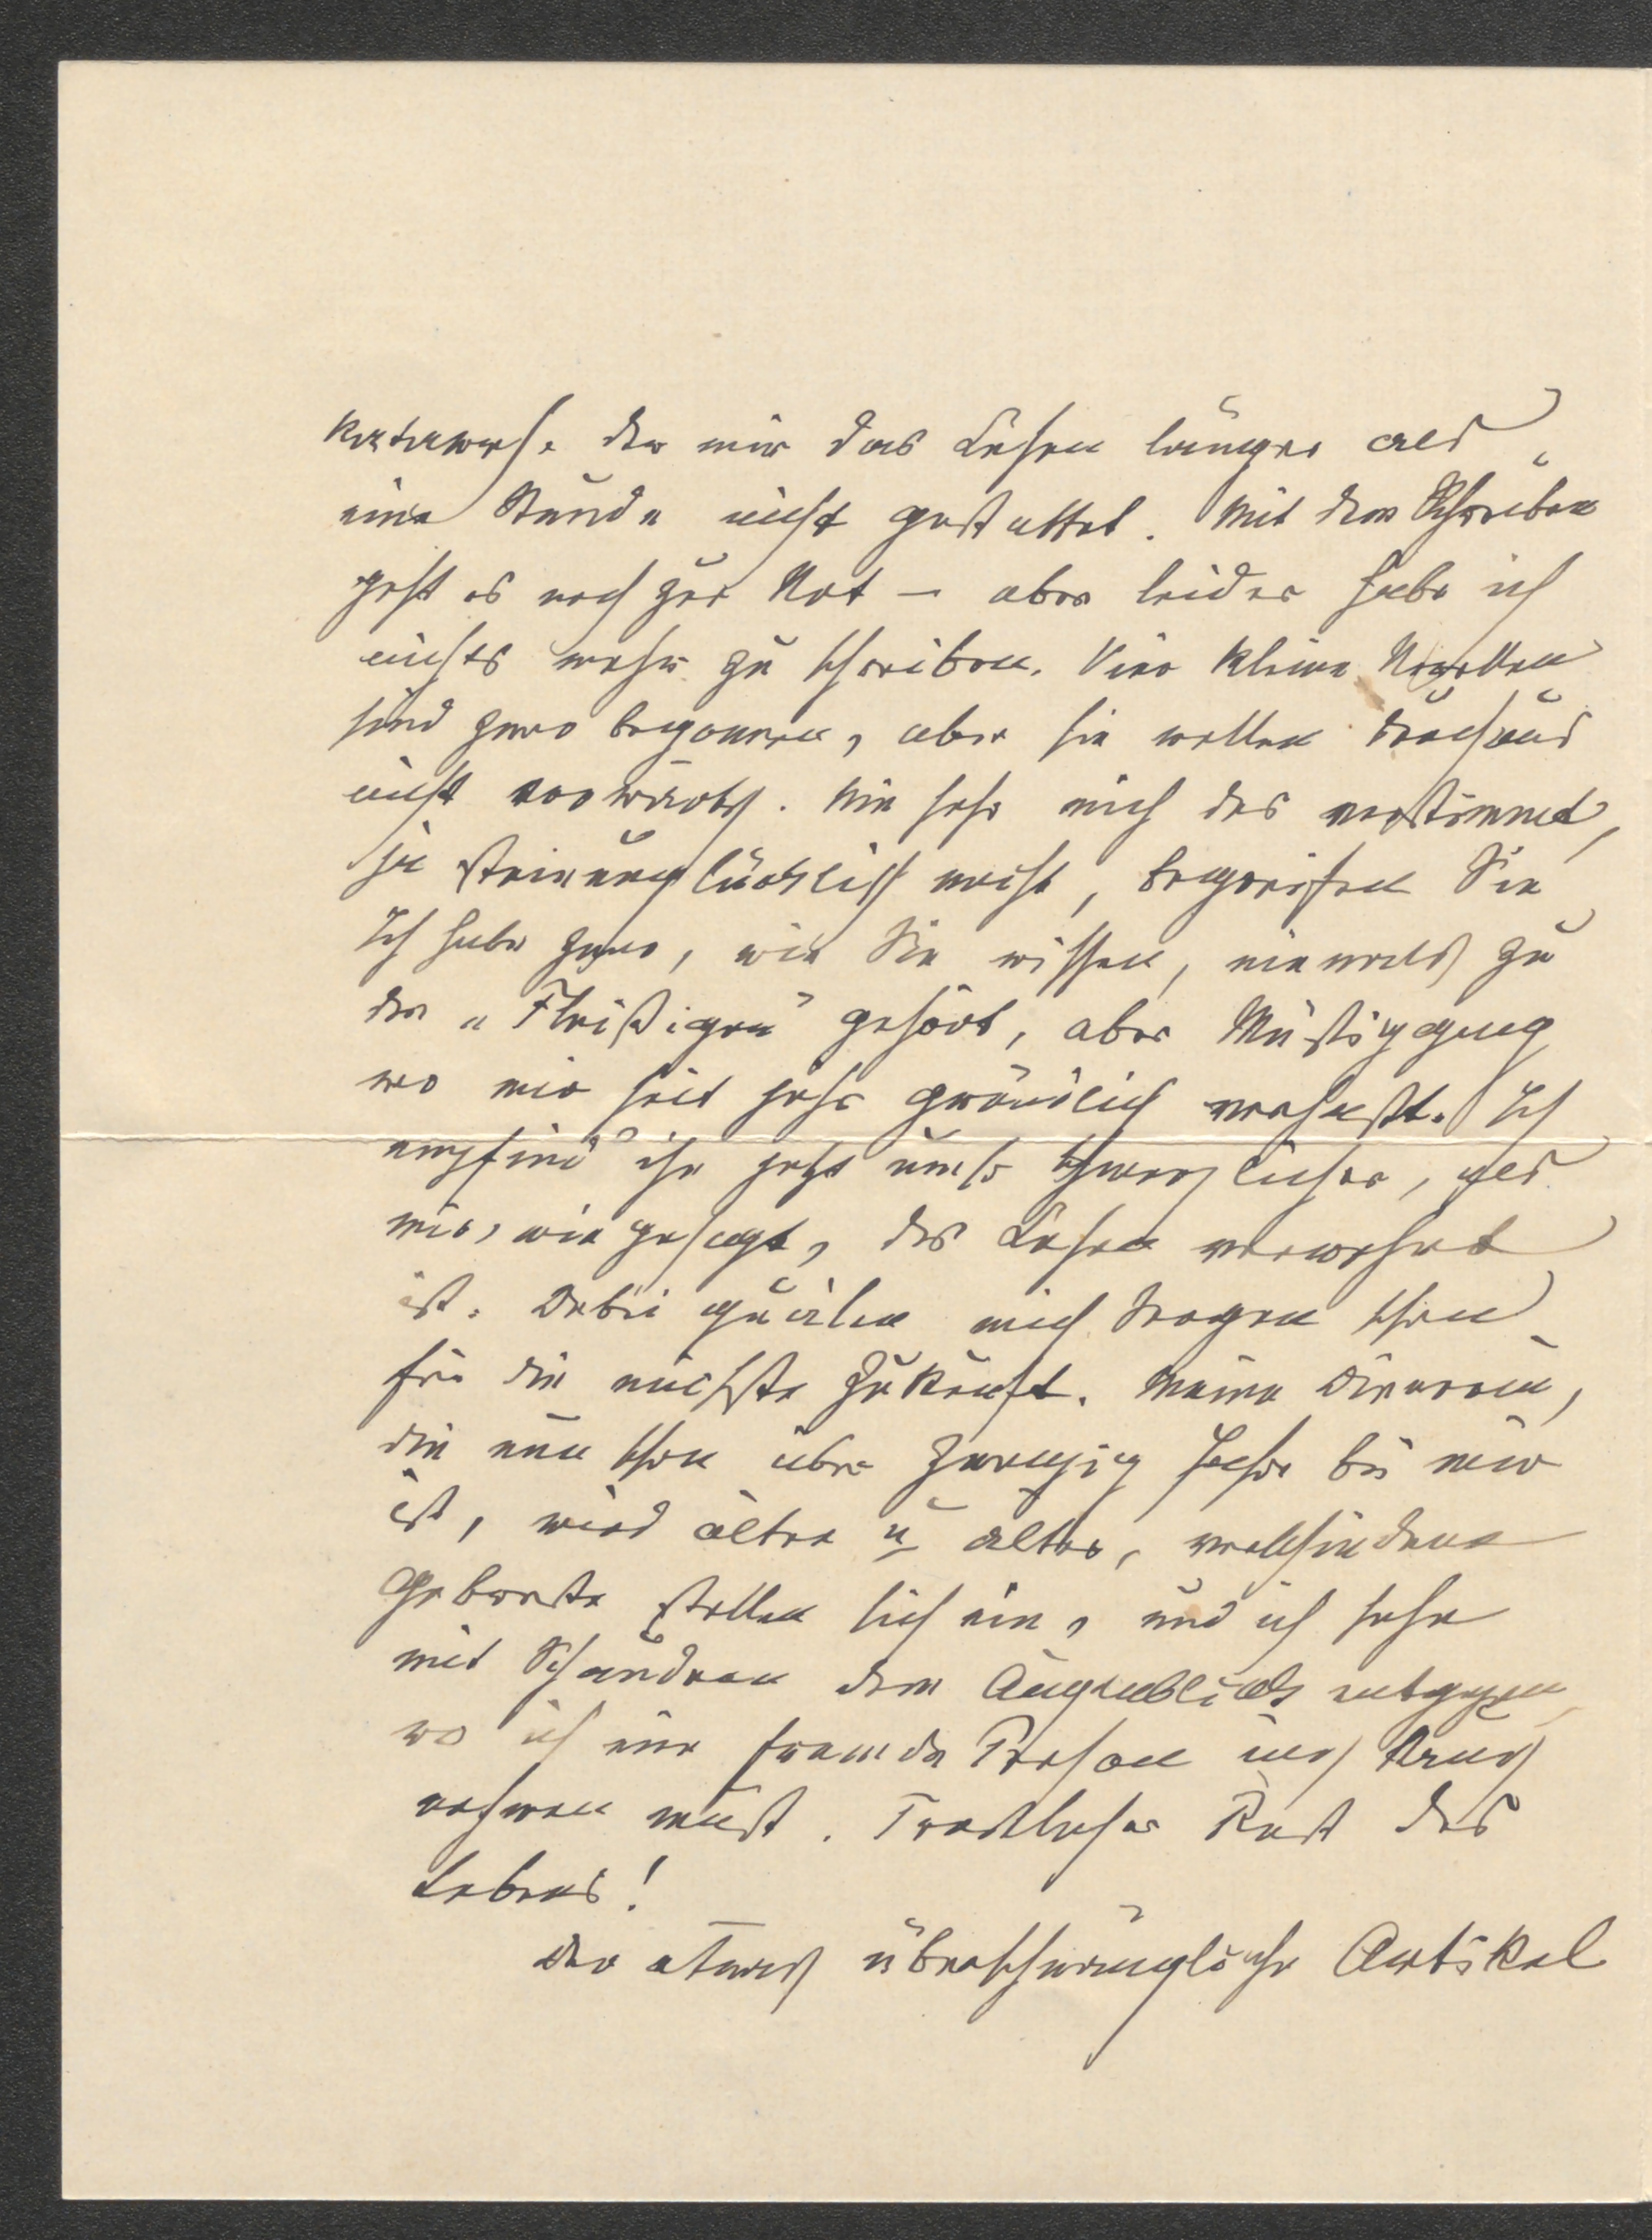 der mir das Lesen länger als
eine Stunde nicht gestattet. Mit dem Schreiben
geht es noch zur Not – aber leider habe ich
nichts mehr zu schreiben. Vier kleine Novellen
sind zwar begonnen, aber sie wollen durchaus
nicht vorwärts. Wie sehr mich das verstimmt,
ja unglücklich macht, begreifen Sie
Ich habe zwar, wie Sie wissen, niemals zu
den „Fleißigen" gehört, aber Müßiggang
war mir seit jeher gründlich verhaßt. Ich
empfind' ihn jetzt umso schmerzlicher, als
mir, wie gesagt, das Lesen verwehrt
ist. Dabei quälen mich Sorgen schon
für die nächste Zukunft. Meine Dienerin,
die nun schon über zwanzig Jahre bei mir
ist, wird älter u älter,
Gebreste stellen sich ein, und ich sehe
mit Schaudern dem Augenblick entgegen,
wo ich eine fremde Person ins Haus
nehmen muß. Trostloser Rest des
Lebens!
Der etwas überschwängliche Artikel